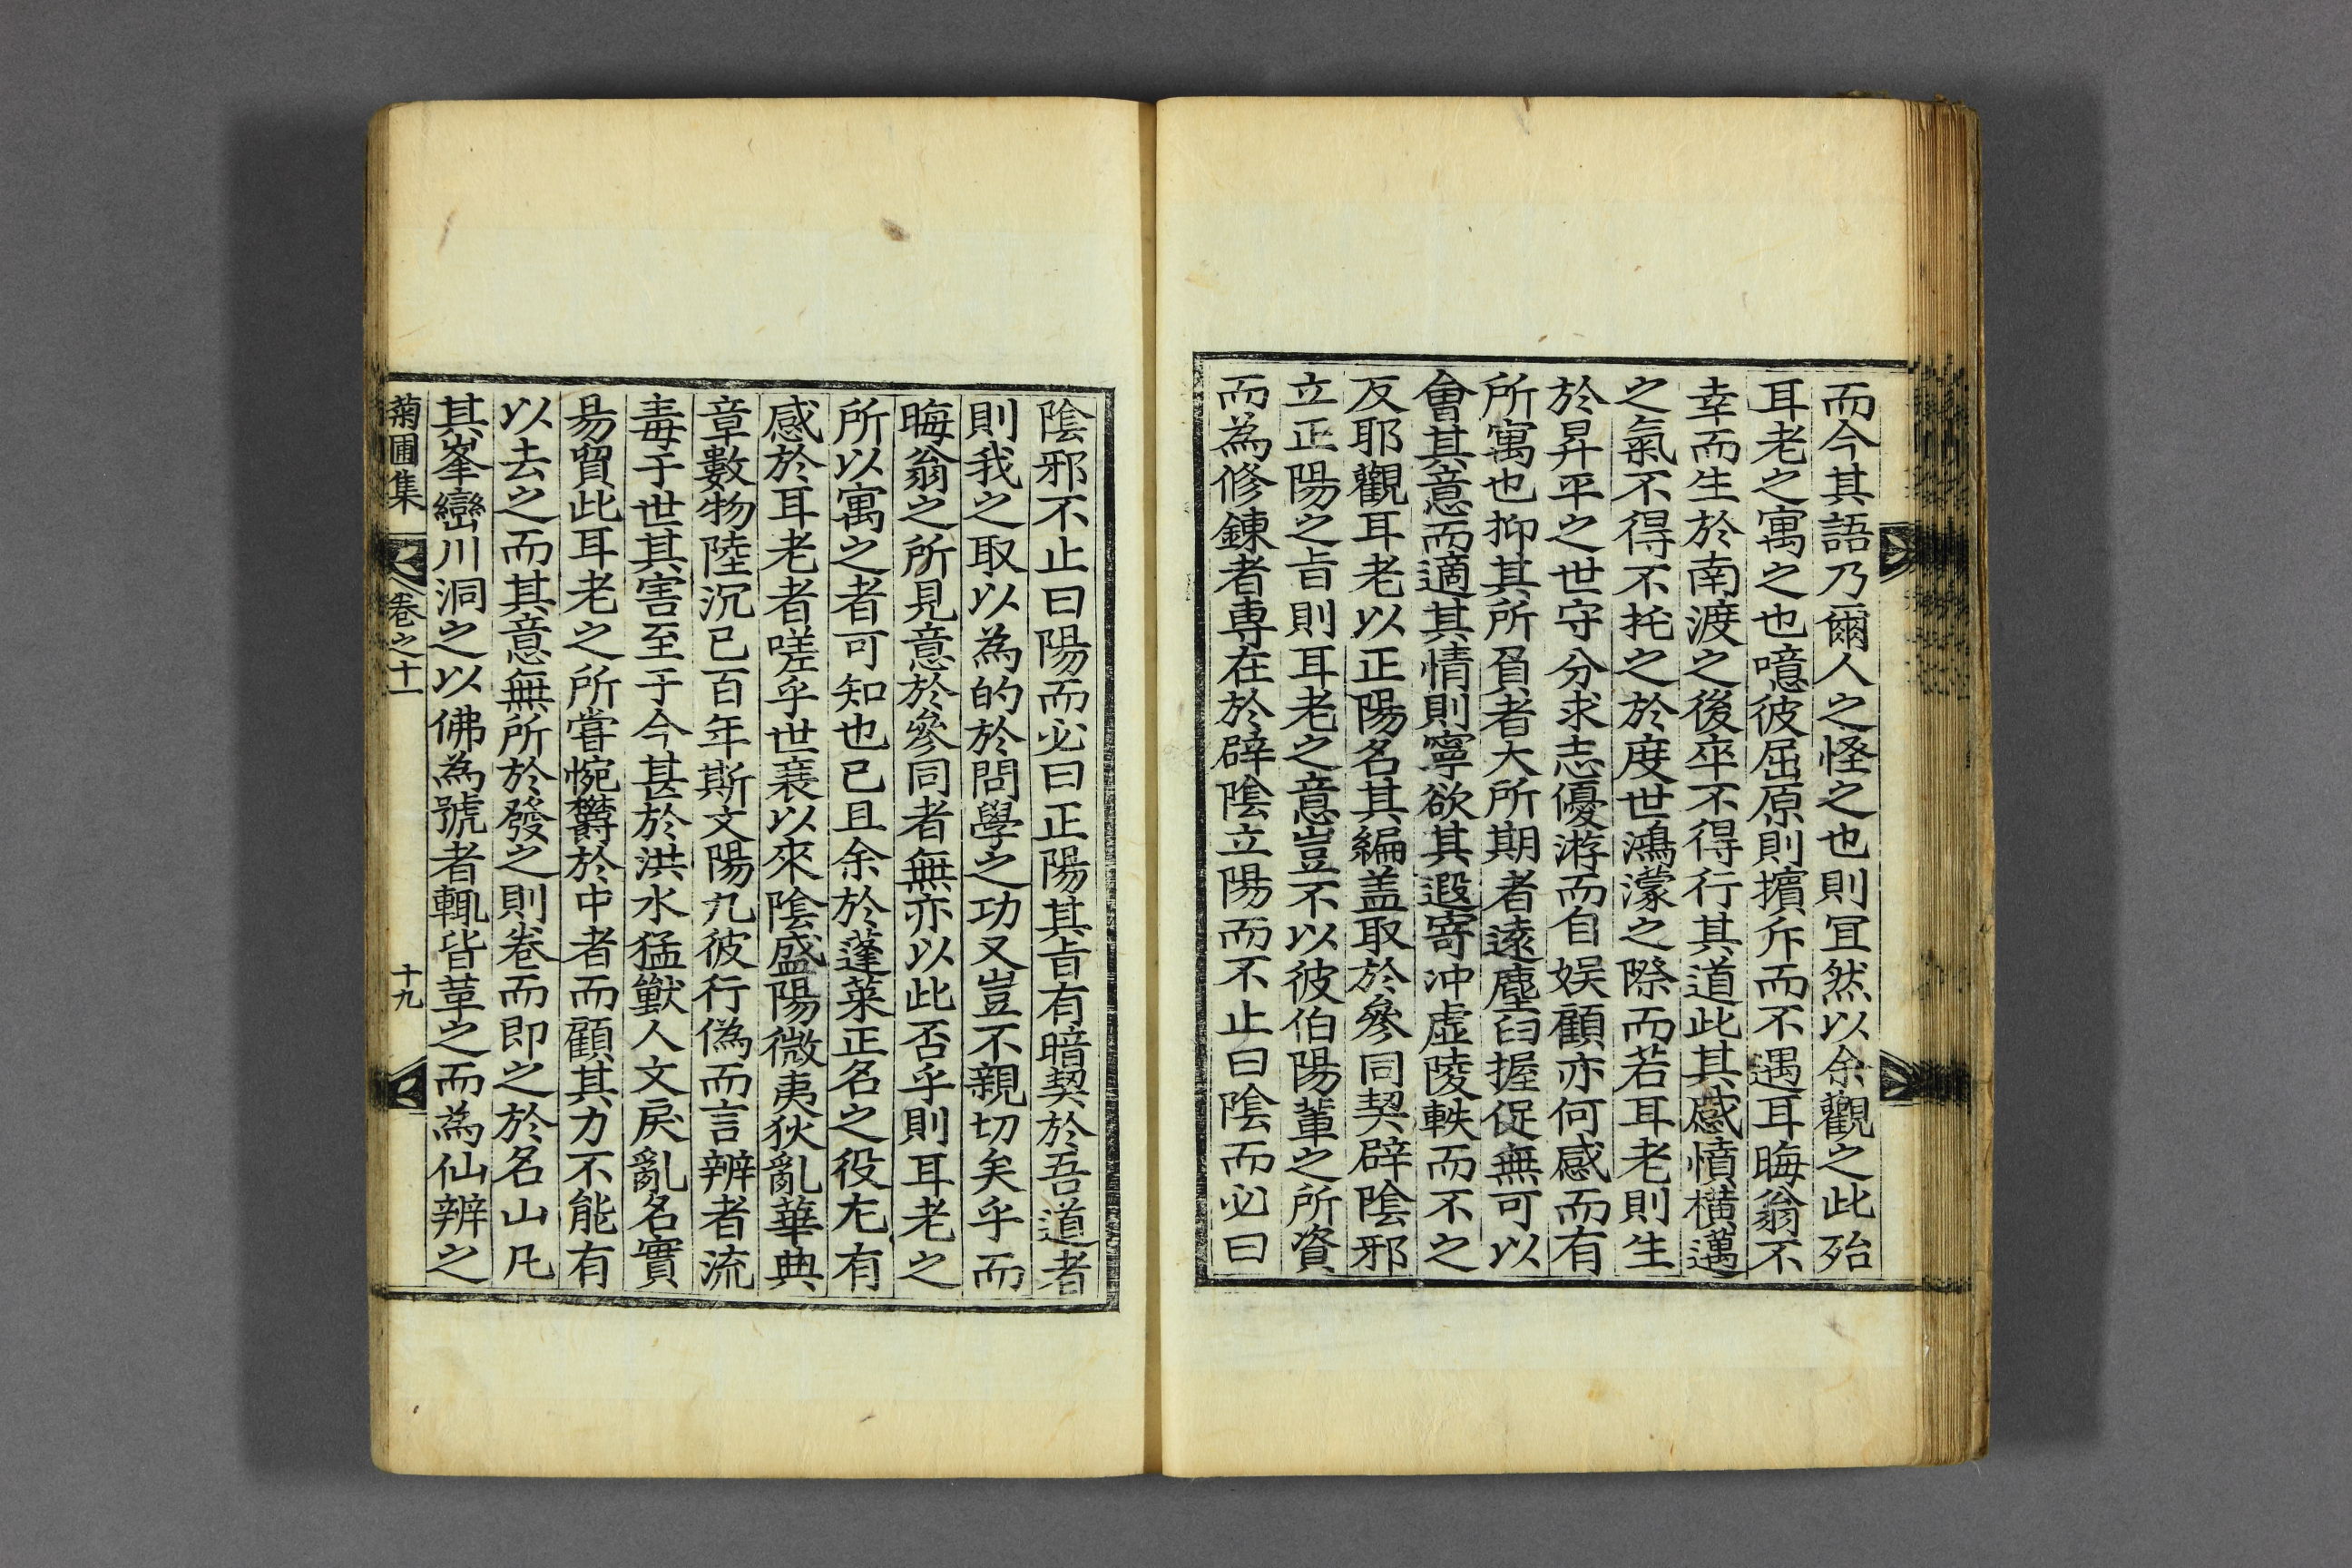 而今其語乃爾人之怪之也則冝然以余觀之此殆
耳老之寓之也噫彼屈原則擯斥而不遇耳晦翁不
幸而生於南渡之後卒不得行其道此其感憤橫邁
之氣不得不托之於度世鴻濛之際而若耳老則生
於昇平之世守分求志優游而自娛顧亦何感而有
所寓也抑其所負者大所期者遠塵臼握促無可以
會其意而適其情則寧欲其遐寄冲虛陵軼而不之
反耶觀耳老以正陽名其編盖取於參同契辟陰邪
立正陽之旨則耳老之意豈不以彼伯陽輩之所資
而為修鍊者專在於辟陰立陽而不止曰陰而必曰
陰邪不止曰陽而必曰正陽其旨有暗契於吾道者
則我之取以為的於問學之功又豈不親切矣乎而
晦翁之所見意於參同者無亦以此否乎則耳老之
所以寓之者可知也已且余於蓬萊正名之役尤有
感於耳老者嗟乎世衰以來陰盛陽微夷狄亂華典
章數物陸沉已百年斯文陽九彼行僞而言辨者流
毒于世其害至于今甚於洪水猛獸人文戾亂名實
易貿此耳老之所甞惋欝於中者而顧其力不能有
以去之而其意無所於發之則卷而即之於名山凡
其峯巒川洞之以佛為號者輒皆革之而為仙辨之
菊圃集 卷之十一 十九